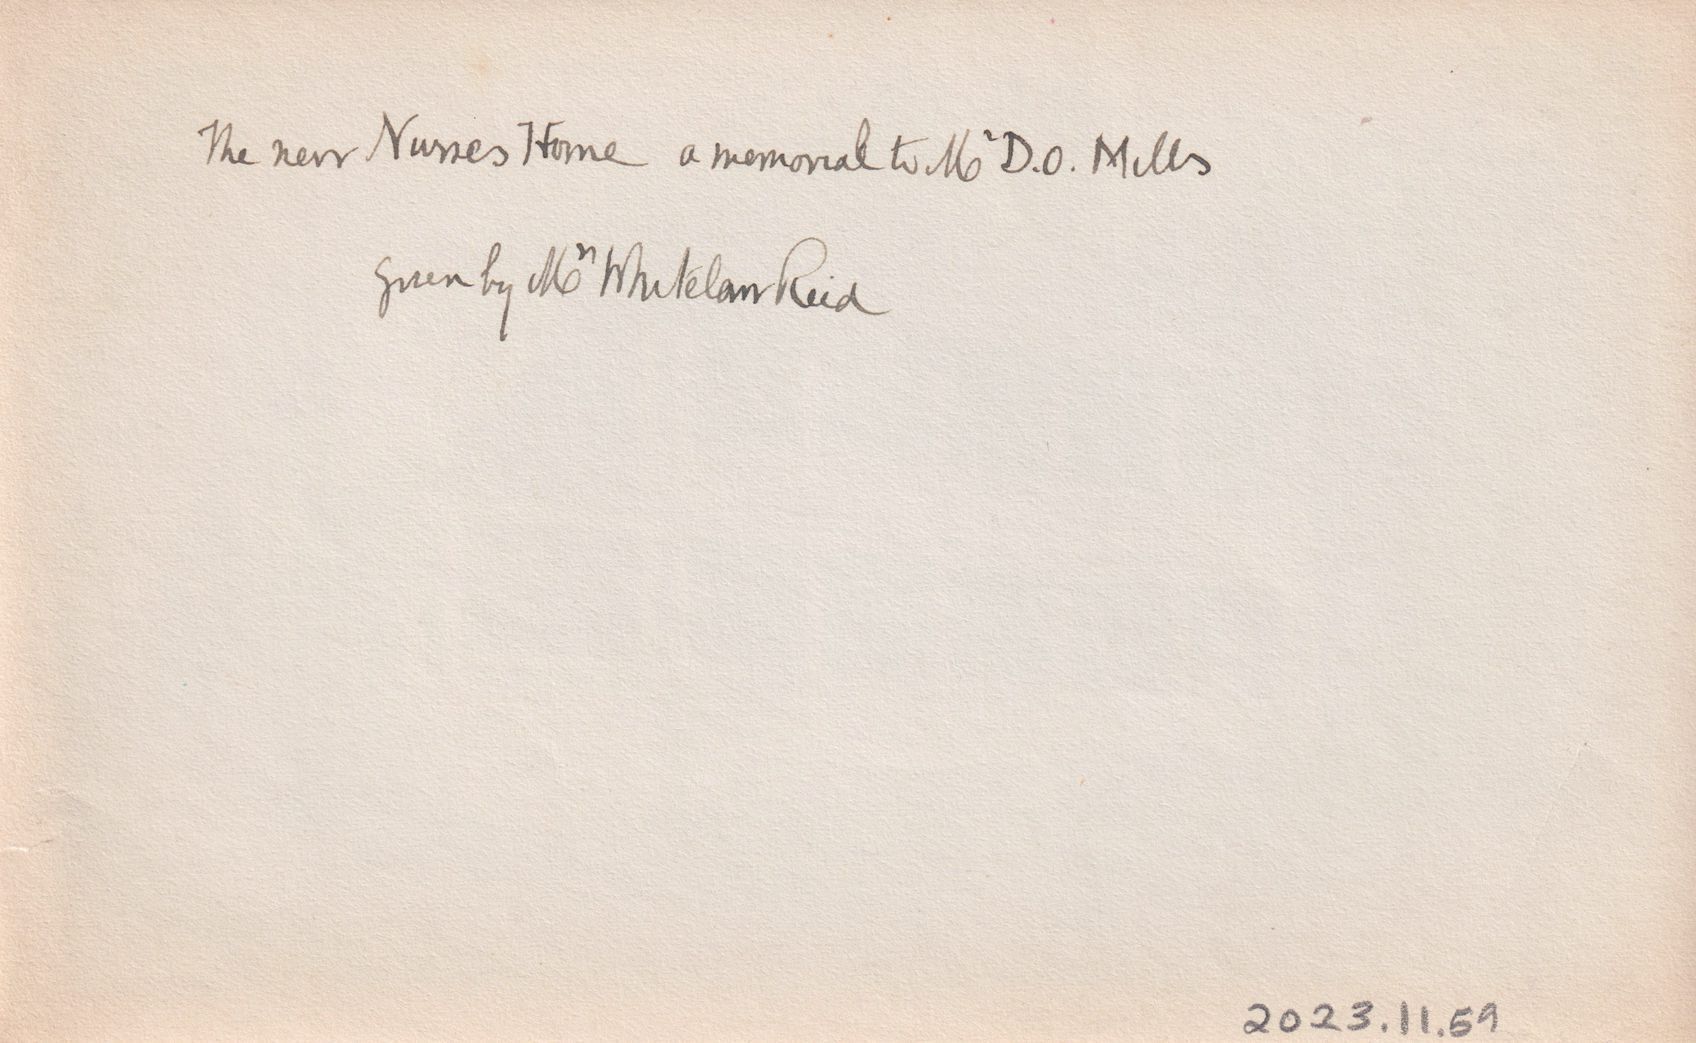 The new Nurses Home a memorial to Mr D.O. Mills
given by Mrs Whitelaw Reid
2023.11.59